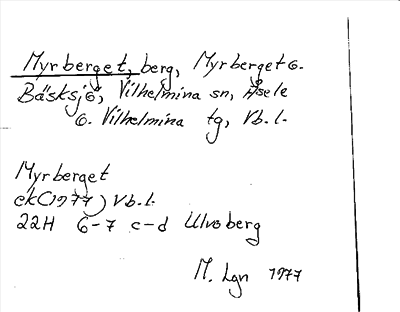 Myrberget, berg, Myrberget o.
Bäsksjö, Vilhelmina sn, Åsele
o. Vilhelmina tg, Vb.l.
Myrberget
ek(1977) Vb.l.
22H 6-7 c-d Ulvoberg
M. Lgn 1977